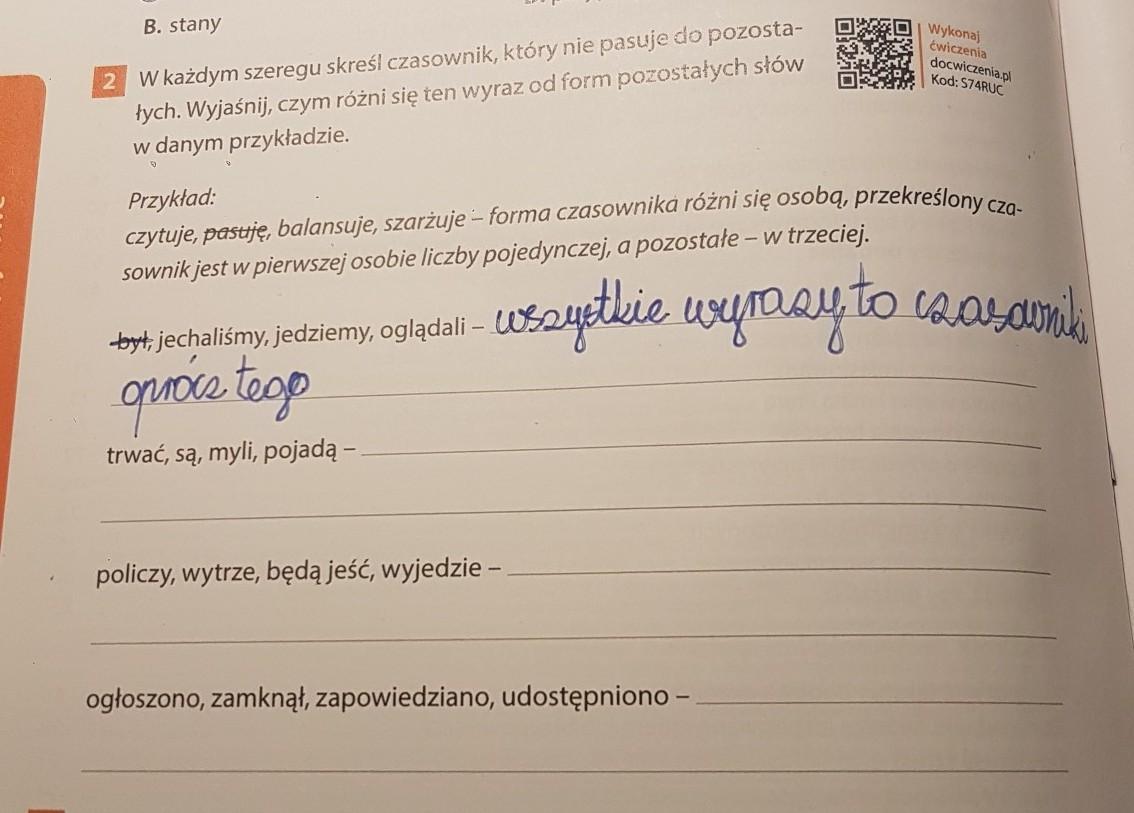 B. stany
2 W każdym szeregu skreśl czasownik, który nie pasuje do pozosta-
łych. Wyjaśnij, czym różni się ten wyraz od form pozostałych słów
w danym przykładzie.
Wykonaj
ćwiczenia
docwiczenia.pl
Kod: S74RUC
Przykład:
czytuje, pasuję, balansuje, szarżuje – forma czasownika różni się osobą, przekreślony cza-
sownik jest w pierwszej osobie liczby pojedynczej, a pozostałe – w trzeciej.
był, jechaliśmy, jedziemy, oglądali – wszystkie wyrazy to czasowniki
oprócz tego
trwać, są, myli, pojadą –
policzy, wytrze, będą jeść, wyjedzie –
ogłoszono, zamknął, zapowiedziano, udostępniono –